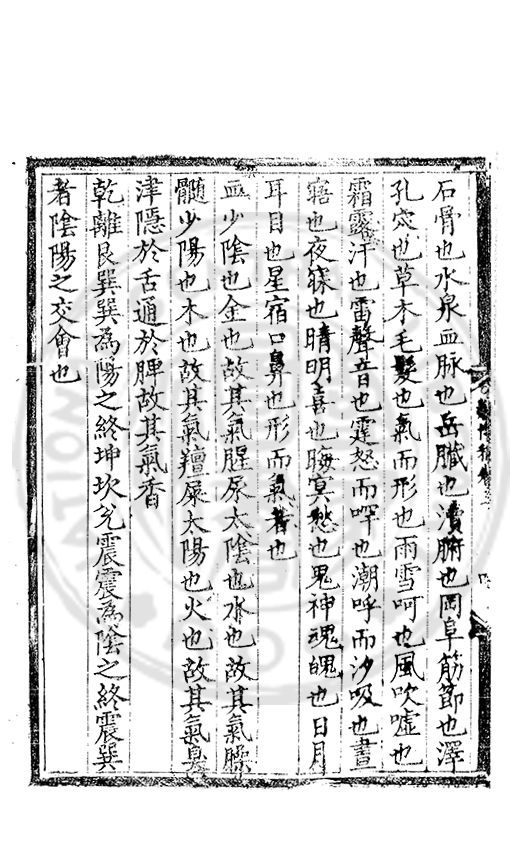 石骨也水泉血脉也岳臟也瀆腑也岡阜筋節也澤
孔穴也草木毛髮也氣而形也雨雪呵也風吹噓也
霜露汗也雷聲音也霆怒而呼也潮呼而汐吸也晝
寤也夜寐也晴明喜也晦冥愁也鬼神魂魄也日月
耳目也星宿口鼻也形而氣者也
血少陰也金也故其氣腥尿太陰也水也故其氣臊
髓少陽也木也故其氣羶屎太陽也火也故其氣臭
津隱於舌通於脾故其氣香
乾離艮巽巽為陽之終坤坎兌震震為陰之終震巽
者陰陽之交會也